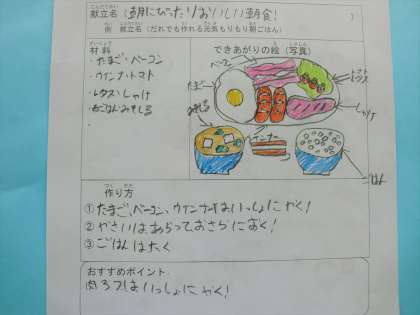 献立名(朝にぴったりおいしい朝食! )
例 献立名(だれでも作れる元気もりもり朝ごはん)
材料
・たまご・ベーコン
・ウインナ・トマト
・レタス・しゃけ
・ごはん・みそしる
できあがりの絵(写真)
ベーコン
たまご
トマト
レタス
しゃけ
みそしる
ウインナー
ごはん
作り方
①たまご、ベーコン、ウインナーはいっしょにやく!
②やさいはあらっておさらにおく!
③ごはんはたく
おすすめポイント
肉るいはいっしょにやく!